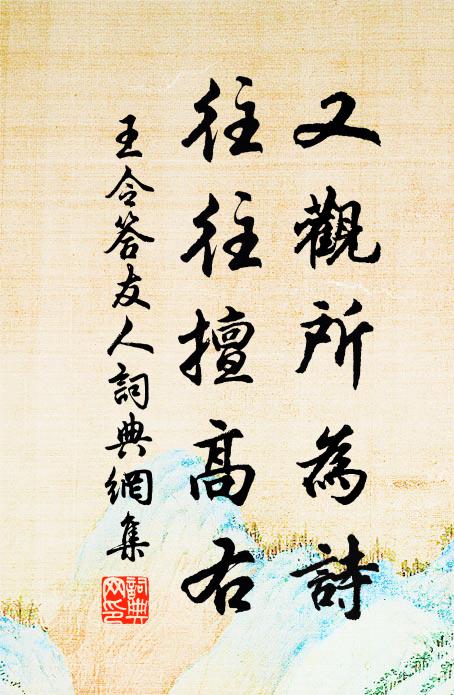 又觀所為詩
往往擅高右
王令答友人詞典網集
詞典網印